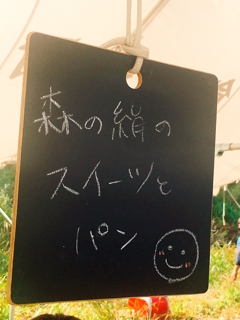 森の絹の
スイーツと
パン